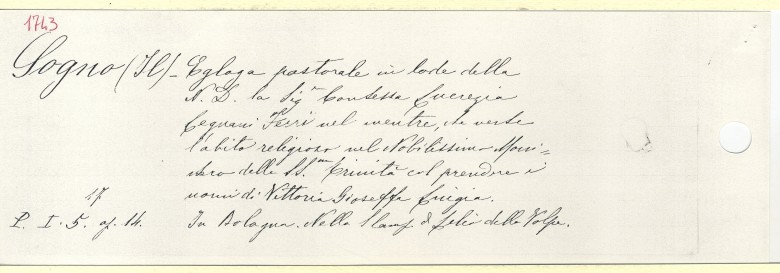 1743
Sogno (Il) - Egloga pastorale in lode della
N. D. la Sigª Contessa Lucrezia
Cegnani Ferri nel mentre, che veste
l'abito religioso nel Nobilissimo Moni-
stero della SS.ma Trinità col prendere i
nomi di Vittoria Gioseffa Luigia.
17
P. I. 5. op. 14. In Bologna. Nella Stamp. di Lelio dalla Volpe.